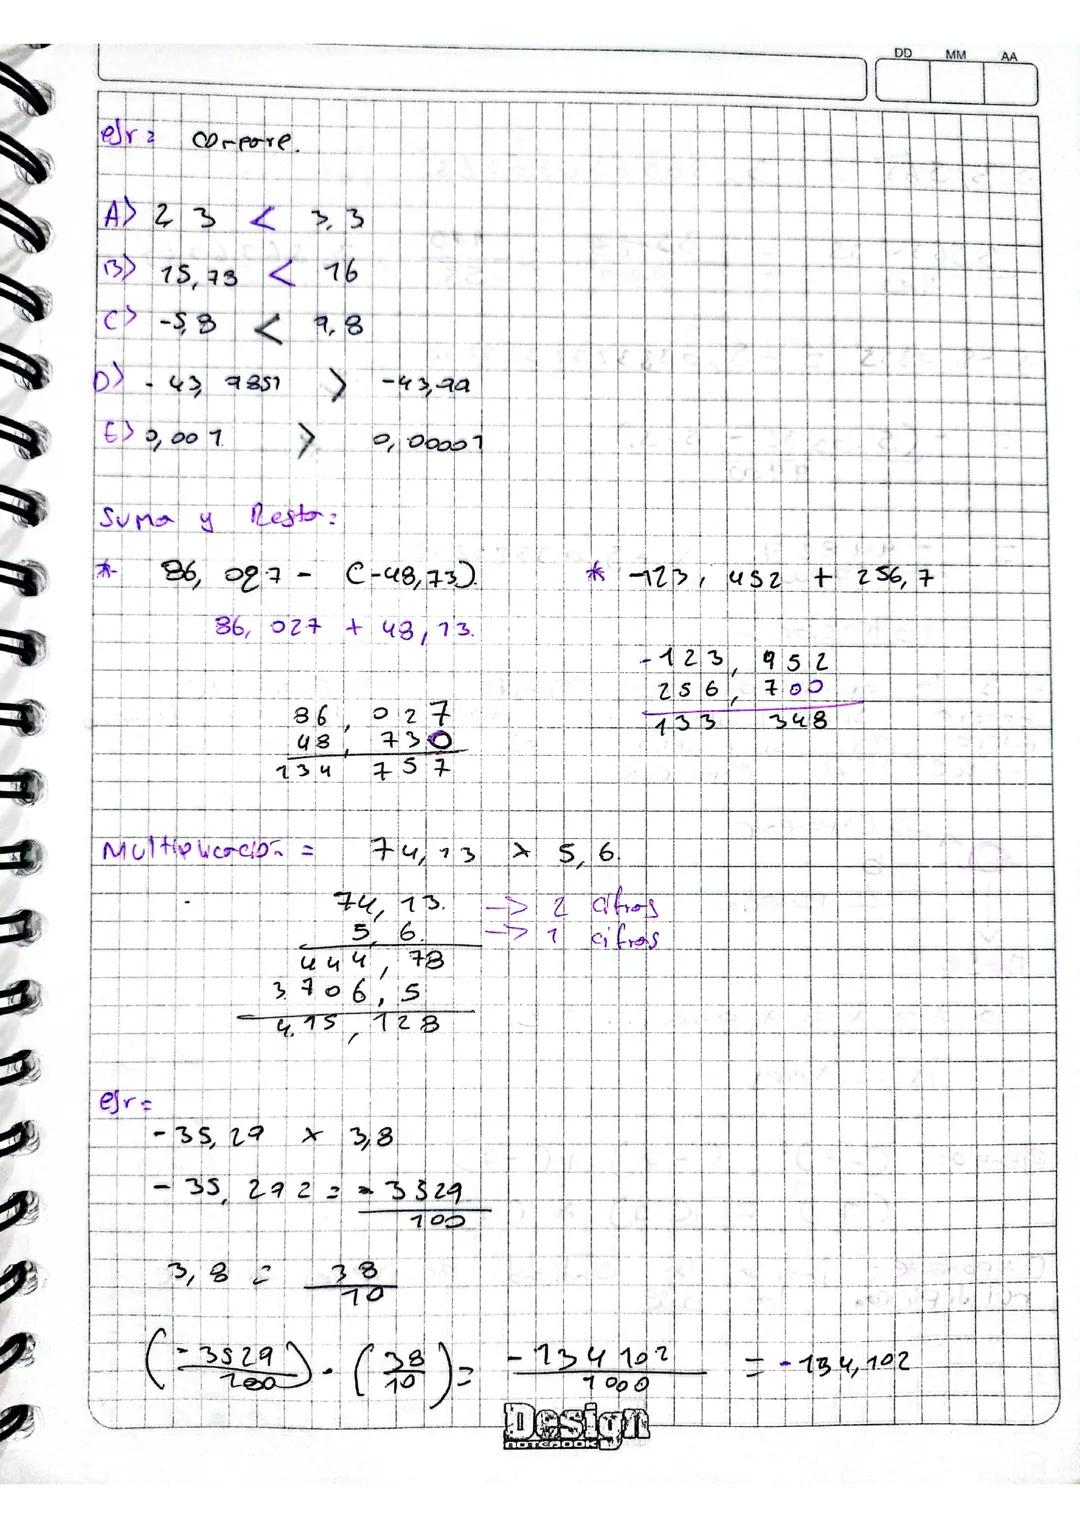 DD MM AA
ejr: compare.
A) 2 3 < 3,3
B) 15,73 < 16
C) -5,8 < 9,8
D) -43,9851 > -43,99
E) 0,001 > 0,00001
Suma y Resta:
* 86,027 - (-48,73). * -123,452 + 256,7
86,027 + 48,73.
-123,952
256,700
133 348
86,027
48,730
134,757
Multiplicación = 74,13 x 5,6.
74,13. -> 2 cifras
5,6. -> 1 cifras
444,78
3706,5
415,128
ejr=
-35,29 x 3,8
-35,292 = -3529/100
3,8 = 38/10
(-3529/100) · (38/10) = -134102/1000 = -134,102
Design
NOTEBOOK